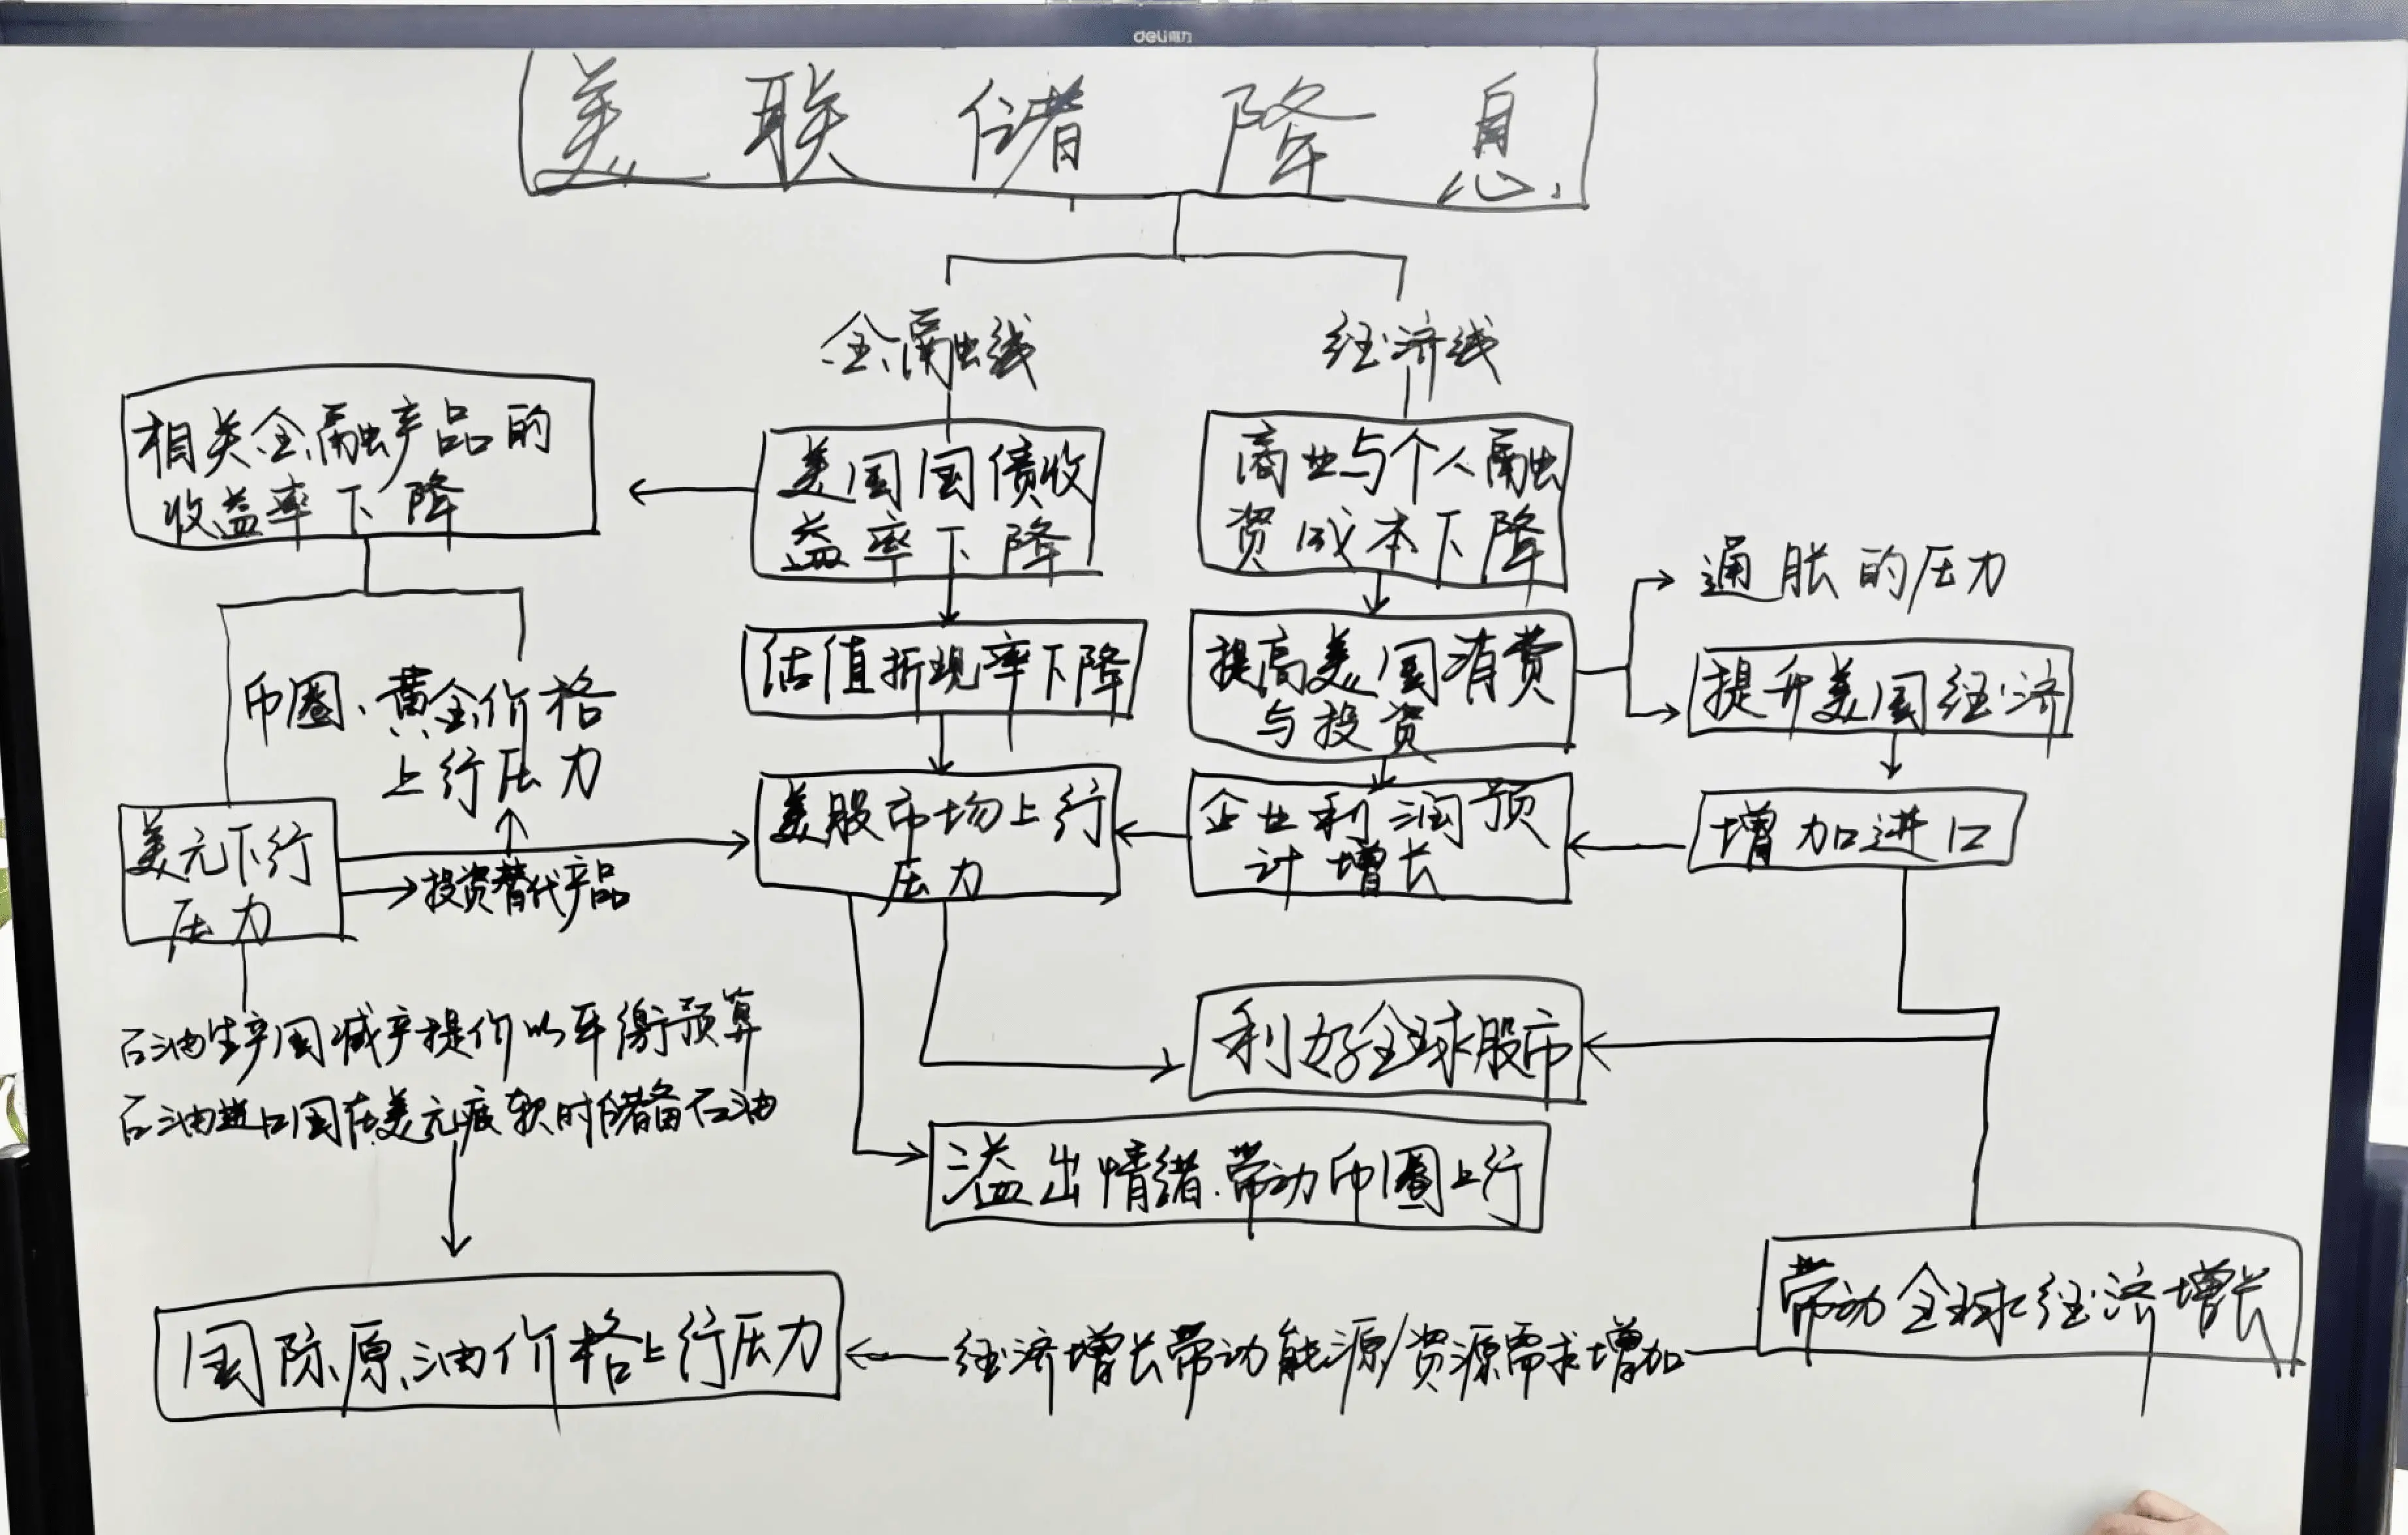 deli得力
美联储降息
金融线
经济线
相关金融产品的
收益率下降
美国国债收
益率下降
商业与个人融
资成本下降
通胀的压力
估值折现率下降
提高美国消费
与投资
提升美国经济
币圈、黄金价格
上行压力
美元下行
压力
投资替代产品
美股市场上行
压力
企业利润预
计增长
增加进口
石油生产国减产提价以平衡预算
石油进口国在美元疲软时储备石油
利好全球股市
溢出情绪.带动币圈上行
国际原油价格上行压力
经济增长带动能源/资源需求增加
带动全球经济增长